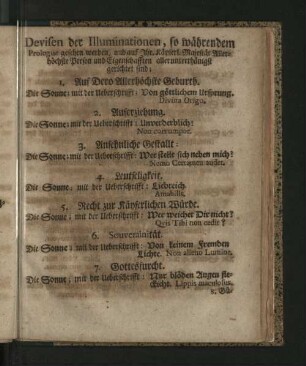 Devisen der Illuminationen, so währendem
Prologus gesehen werden, und auf Ihr. Käyserl. Majestät Aller-
höchste Person und Eigenschafften allerunterthänigst
gerichtet sind;
1. Auf Dero Allerhöchste Geburth.
Die Sonne: mit der Ueberschrifft: Von göttlichem Ursprung.
Divina Origo.
2. Auferziehung.
Die Sonne: mit der Ueberschrifft: Unverderblich:
Non corrumpor.
3. Ansehnliche Gestallt:
Die Sonne: mit der Ueberschrifft: Wer stellt sich neben mich?
Nemo Comparari audet.
4. Leutseligkeit.
Die Sonne; mit der Ueberschrifft: Liebreich
Amabilis.
5. Recht zur Käyserlichen Würde.
Die Sonne: mit der Ueberschrifft: Wer weichet Dir nicht?
Quis Tibi non cedit?
6. Souverainität.
Die Sonne: mit der Ueberschrifft: Von keinem Fremden
Lichte. Non alieno Lumine.
7. Gottesfurcht.
Die Sonne, mit der Ueberschrifft: Nur blöden Augen fle-
ckicht. Lippis maculosus.
8. Gü-